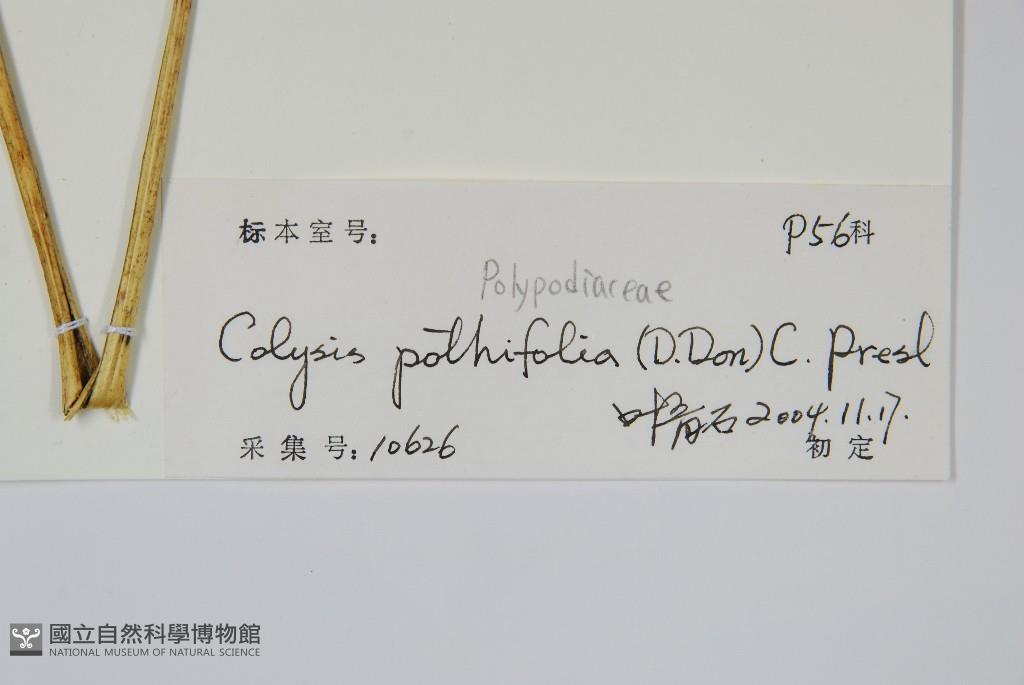 标本室号:
P56科
Polypodiaceae
Colysis pothifolia (D.Don) C. Presl
叶育石 2004.11.17.
采集号: 10626
初定
國立自然科學博物館
NATIONAL MUSEUM OF NATURAL SCIENCE